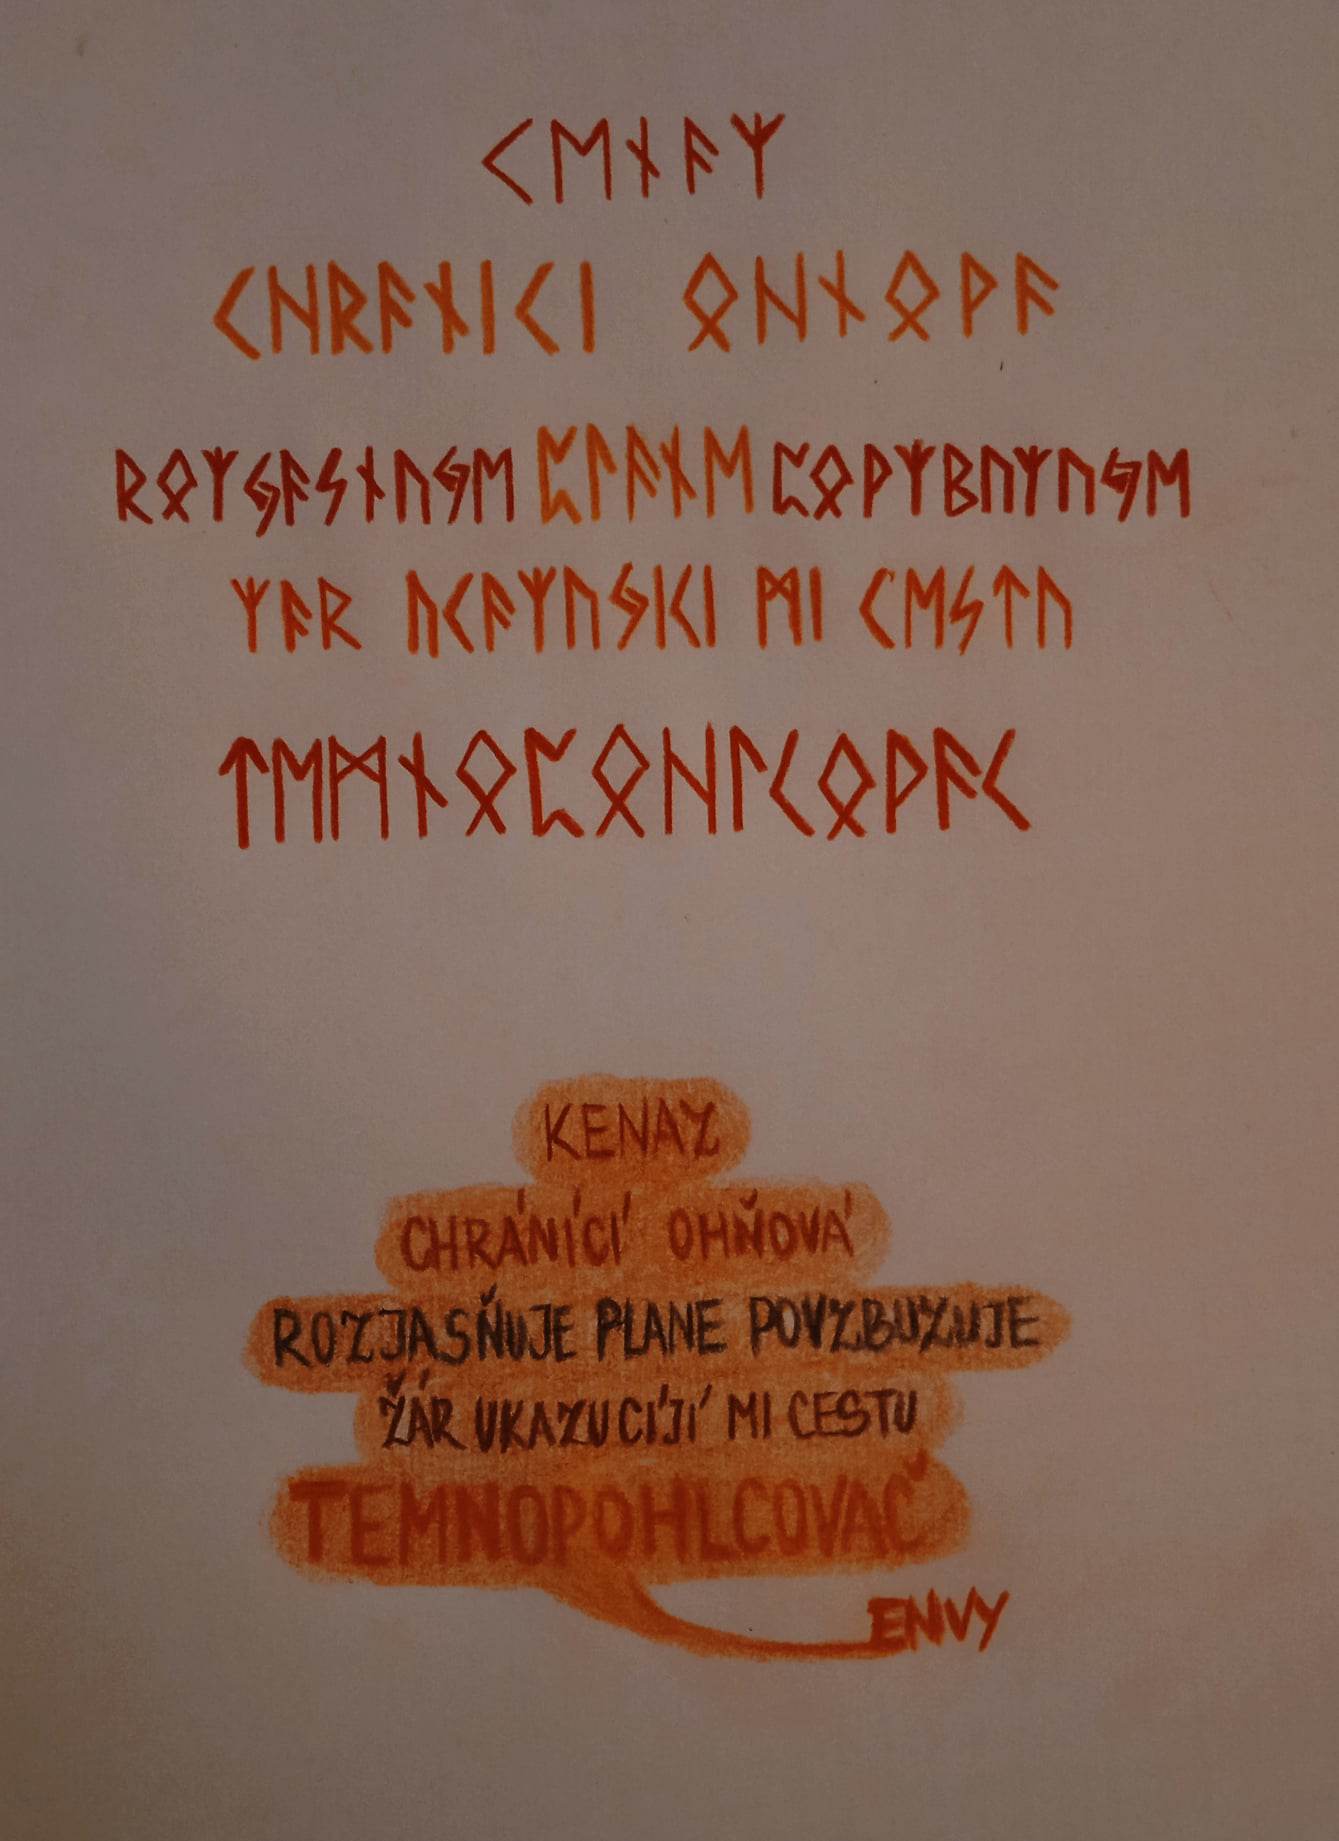 ᚲᛖᚾᚨᛉ
ᚲᚺᚱᚨᚾᛁᚲᛁ ᛟᚺᚾᛟᚹᚨ
ᚱᛟᛉᛃᚨᛊᚾᚢᛃᛖ ᛈᛚᚨᚾᛖ ᛈᛟᚹᛉᛒᚢᛉᚢᛃᛖ
ᛉᚨᚱ ᚢᚲᚨᛉᚢᛃᛁᚲᛁ ᛗᛁ ᚲᛖᛊᛏᚢ
ᛏᛖᛗᚾᛟᛈᛟᚺᛚᚲᛟᚹᚨᚲ
KENAZ
CHRÁNÍCÍ OHŇOVÁ
ROZJASŇUJE PLANE POVZBUZUJE
ŽÁR UKAZUCÍJÍ MI CESTU
TEMNOPOHLCOVAČ
ENVY